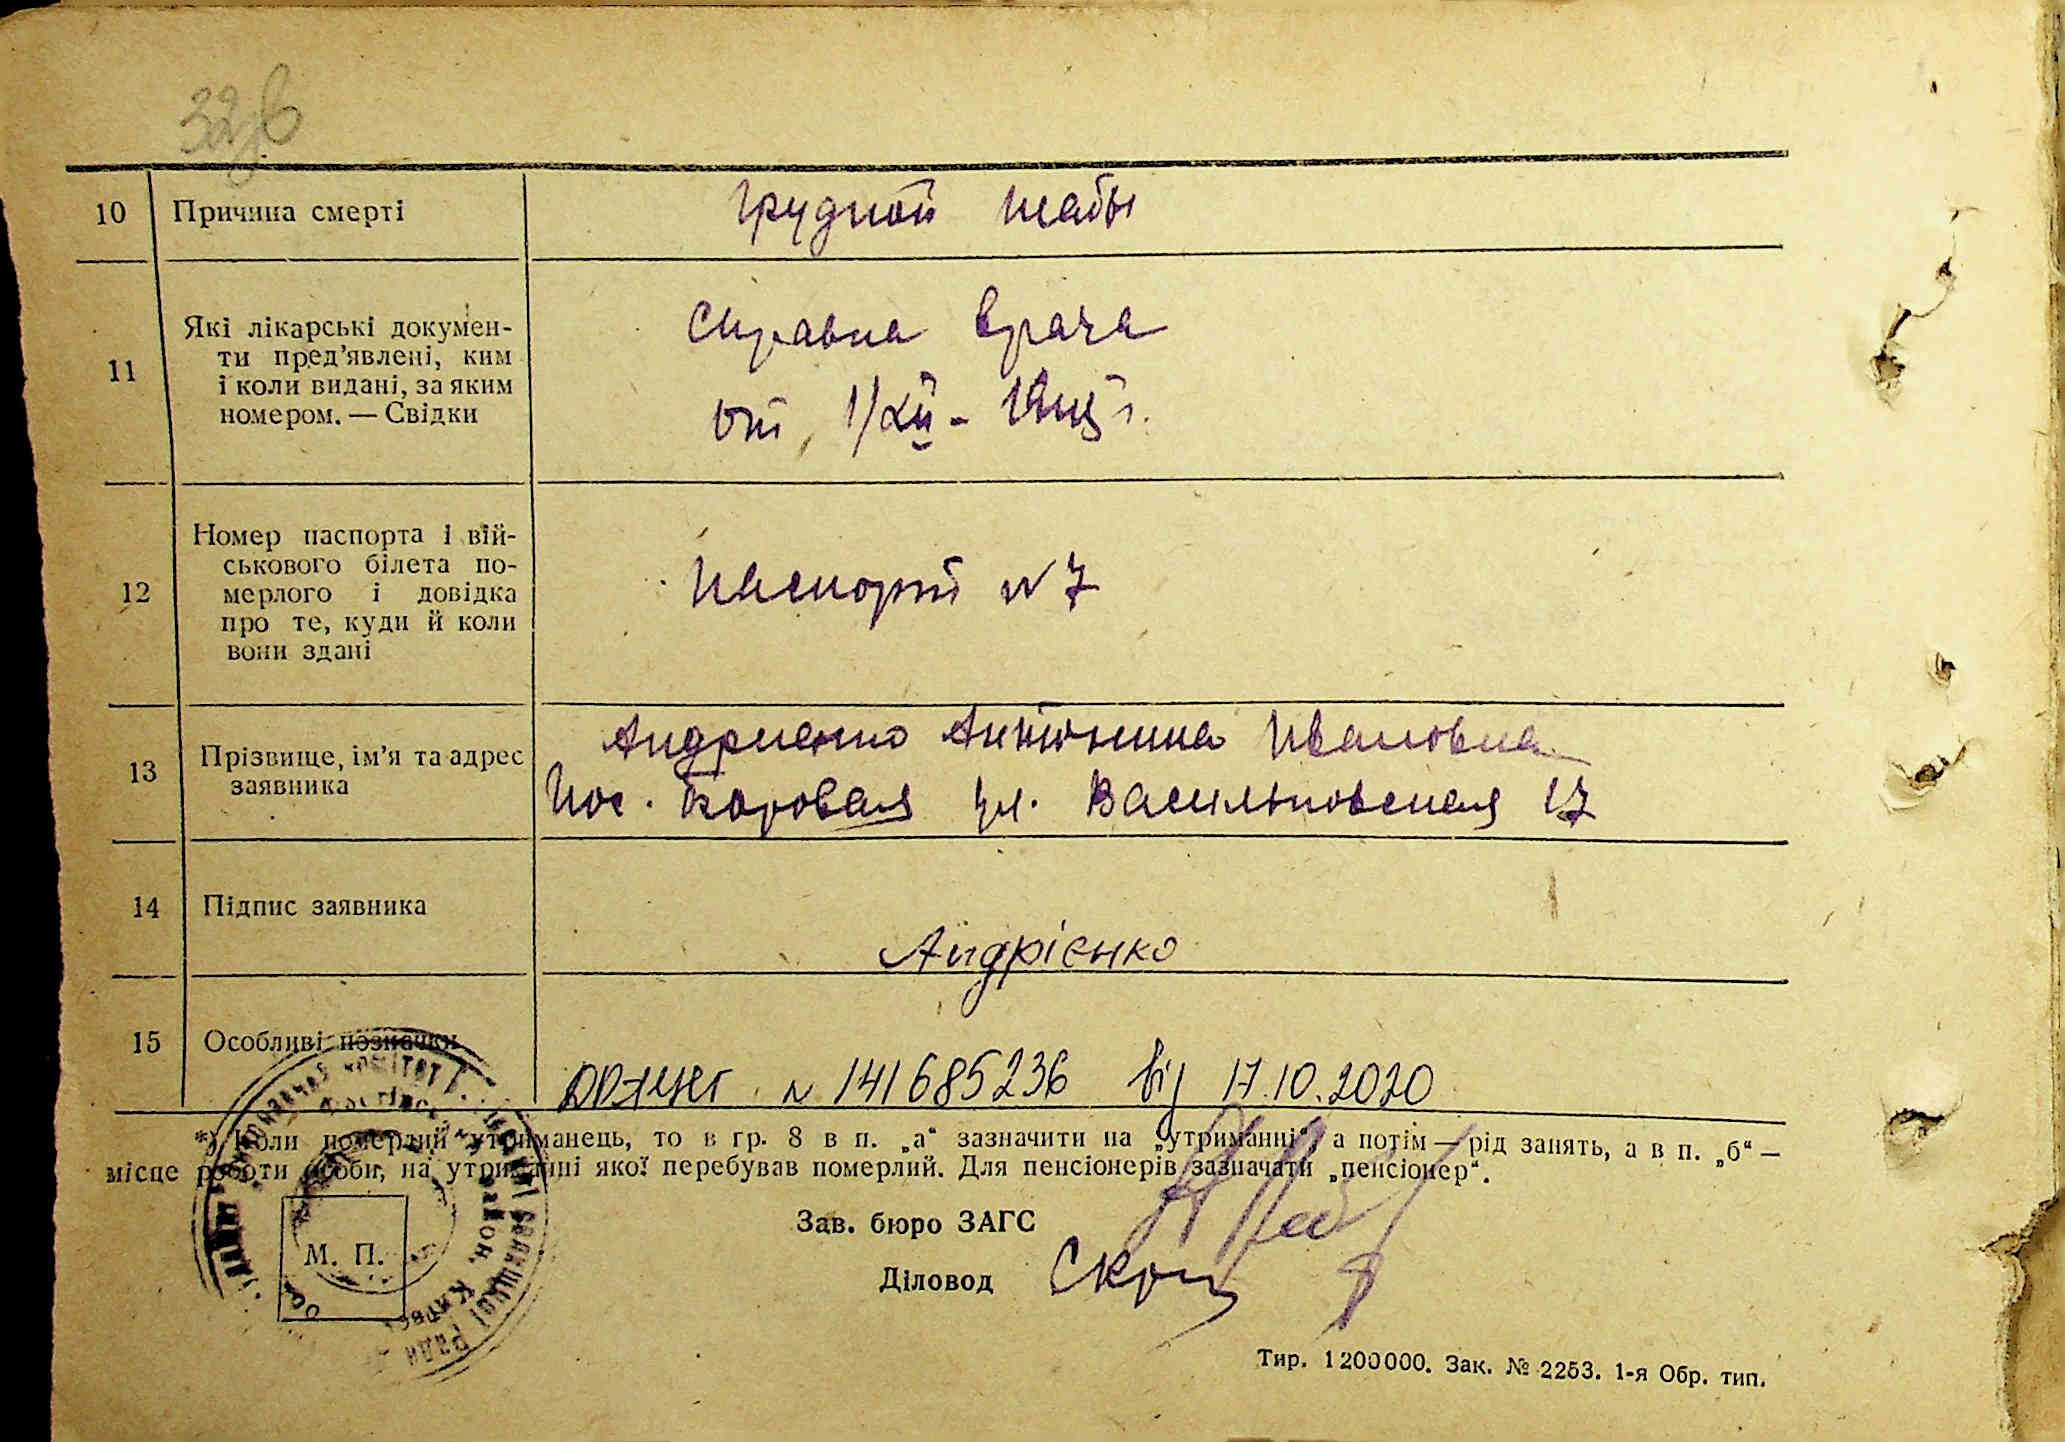 32
10 Причина смерті
грудной жабы
11 Які лікарські докумен-
ти пред'явлені, ким
і коли видані, за яким
номером. — Свідки
Справка врача
от 1/XII-
12 Номер паспорта і вій-
ськового білета по-
мерлого і довідка
про те, куди й коли
вони здані
Паспорт № 7
13 Прізвище, ім'я та адрес
заявника
Андриенко Антонина Ивановна
Пос. Боровая ул. Васильковская 17
14 Підпис заявника
Андрієнко
15 Особливі позначки
№ 141685236 від 17.10.2020
*) Коли померлий утриманець, то в гр. 8 в п. „а“ зазначити на „утриманні“, а потім — рід занять, а в п. „б“ —
місце роботи особи, на утриманні якої перебував померлий. Для пенсіонерів зазначати „пенсіонер“.
Зав. бюро ЗАГС
М. П.
Діловод
Тир. 1200000. Зак. № 2253. 1-я Обр. тип.